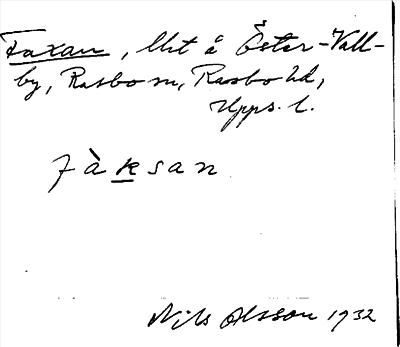 Faxan, lht å Öster-Vall-
by, Rasbo sn, Rasbo hd,
Upps. l.
fàksan
Nils Olsson 1932